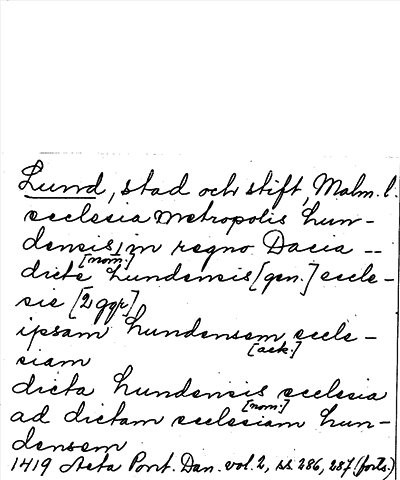 Lund, stad och stift, Malm. l.
ecclesia metropolis Lun-
densis, in regno Dacia --
[nom.]
dicte Lundensis [gen.] eccle-
sie [2 ggr]
ipsam Lundensem eccle-
[ack.]
siam
dicta Lundensis ecclesia
[nom.]
ad dictam ecclesiam Lun-
densem
1419 Acta Pont. Dan. vol. 2, ss 286, 287. (forts.)